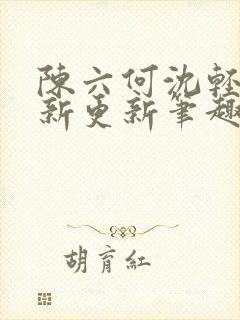 陳六何沈輕
新更新筆趣
胡育紅